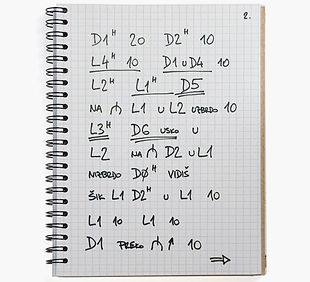 2.
D1ᴴ 20 D2ᴴ 10
L4ᴴ 10 D1 u D4 10
L2ᴴ L1ᴴ D5
NA L1 u L2 UZBRDO 10
L3ᴴ D6 USKO u
L2 NA D2 u L1
NIZBRDO DØᴴ VIDIŠ
ŠIK L1 D2ᴴ u L1 10
L1 10 L1 10
D1 PREKO ↑ 10
⇒